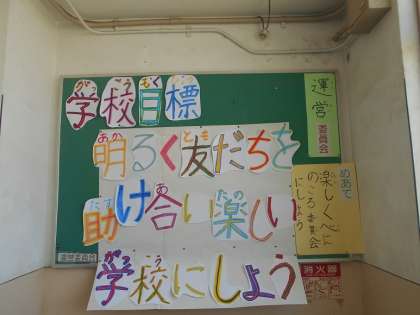 学校目標
明るく友だちを
助け合い楽しい
学校にしよう
運営
委員会
めあて
楽しくへに
のころ委員会
にしよう
消火器